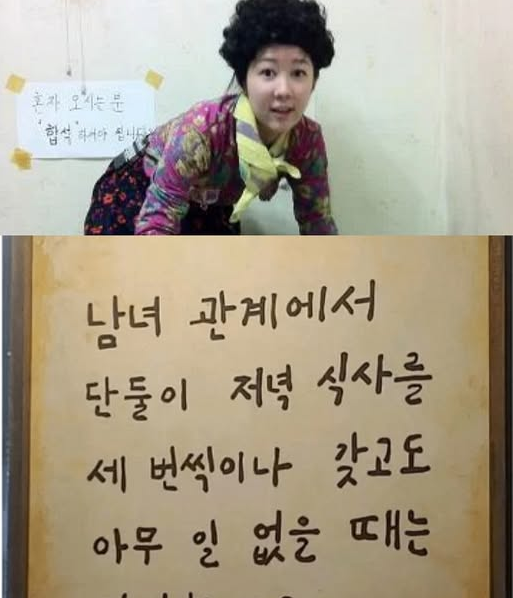 혼자 오시는 분
"합석"하셔야 됩니다
남녀 관계에서
단둘이 저녁 식사를
세 번씩이나 갖고도
아무 일 없을 때는